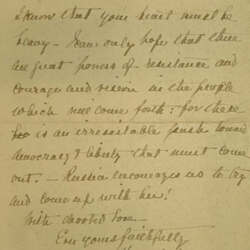 I know that your heart must be
heavy - I can only hope that there
are great powers of resistance and
courage and reason in the people
which will come forth: for there
too is an irresistable push toward
democracy & liberty that must come
out. - Russia encourages us to try
and come up with her!
With devoted love -
Ever yours faithfully